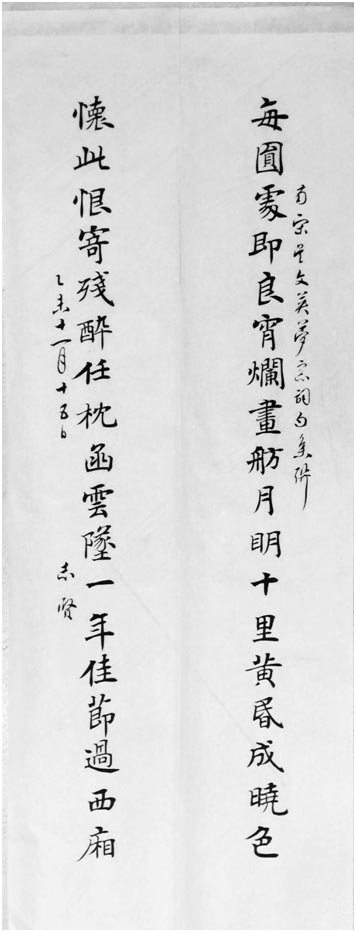 每圓處即良宵爛畫舫月明十里黃昏成曉色
南宋吳文英夢窗詞句集聯
懷此恨寄殘醉任枕函雲墜一年佳節過西廂
乙未十一月十五日
志賢